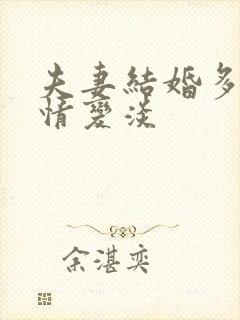 夫妻結婚多
情變淡
余湛奕